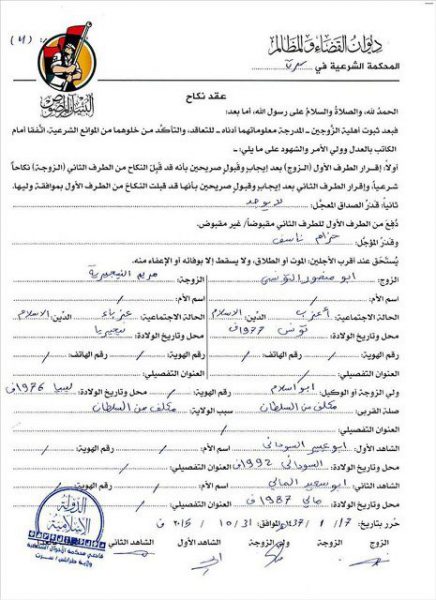 ديوان القضاء والمظالم
المحكمة الشرعية في سرت
(٤)
البنيان المرصوص
عقد نكاح
الحمد لله، والصلاة والسلام على رسول الله، أما بعد:
فبعد ثبوت أهلية الزوجين - المدرجة معلوماتهما أدناه - للتعاقد، والتأكد من خلوهما من الموانع الشرعية، اتفقا أمام
الكاتب بالعدل وولي الأمر والشهود على ما يلي:
أولاً: إقرار الطرف الأول (الزوج) بعد إيجاب وقبول صريحين بأنه قد قبل النكاح من الطرف الثاني (الزوجة) نكاحاً
شرعياً، وإقرار الطرف الثاني بعد إيجاب وقبول صريحين بأنها قد قبلت النكاح من الطرف الأول بموافقة وليها.
ثانياً: قدر الصداق المعجل: لا يوجد
دفع من الطرف الأول للطرف الثاني مقبوضاً/ غير مقبوض.
وقدر المؤجل: حزام ناسف
يُستحق عند أقرب الأجلين: الموت أو الطلاق، ولا يسقط إلا بوفائه أو الإعفاء منه.
الزوج: ابو منصور التونسي الزوجة: مريم النيجيرية
اسم الأم: / اسم الأم: /
الحالة الاجتماعية: أعزب الدين: الاسلام الحالة الاجتماعية: عزباء الدين: الاسلام
محل وتاريخ الولادة: تونس 1977ف محل وتاريخ الولادة: نيجيريا
رقم الهوية: / رقم الهاتف: / رقم الهوية: / رقم الهاتف: /
العنوان التفصيلي: العنوان التفصيلي:
ولي الزوجة أو الوكيل: ابو اسلام رقم الهوية: / محل وتاريخ الولادة: ليبيا 1976ف
صلة القربى: مكلف من السلطان سبب الولاية: مكلف من السلطان
الشاهد الأول: السوداني اسم الأم: /
محل وتاريخ الولادة: السودان 1992ف العنوان التفصيلي:
الشاهد الثاني: ابو سعيد المالي اسم الأم: /
محل وتاريخ الولادة: مالي 1987ف رقم الهوية: /
حرر بتاريخ: 17 / 1 / الموافق: 31 / 10 / 2015 ف
الزوج الزوجة ولي الزوجة الشاهد الأول الشاهد الثاني
الدولة
الإسلامية
قاضي محكمة الأحوال الشخصية
ولاية طرابلس / سرت